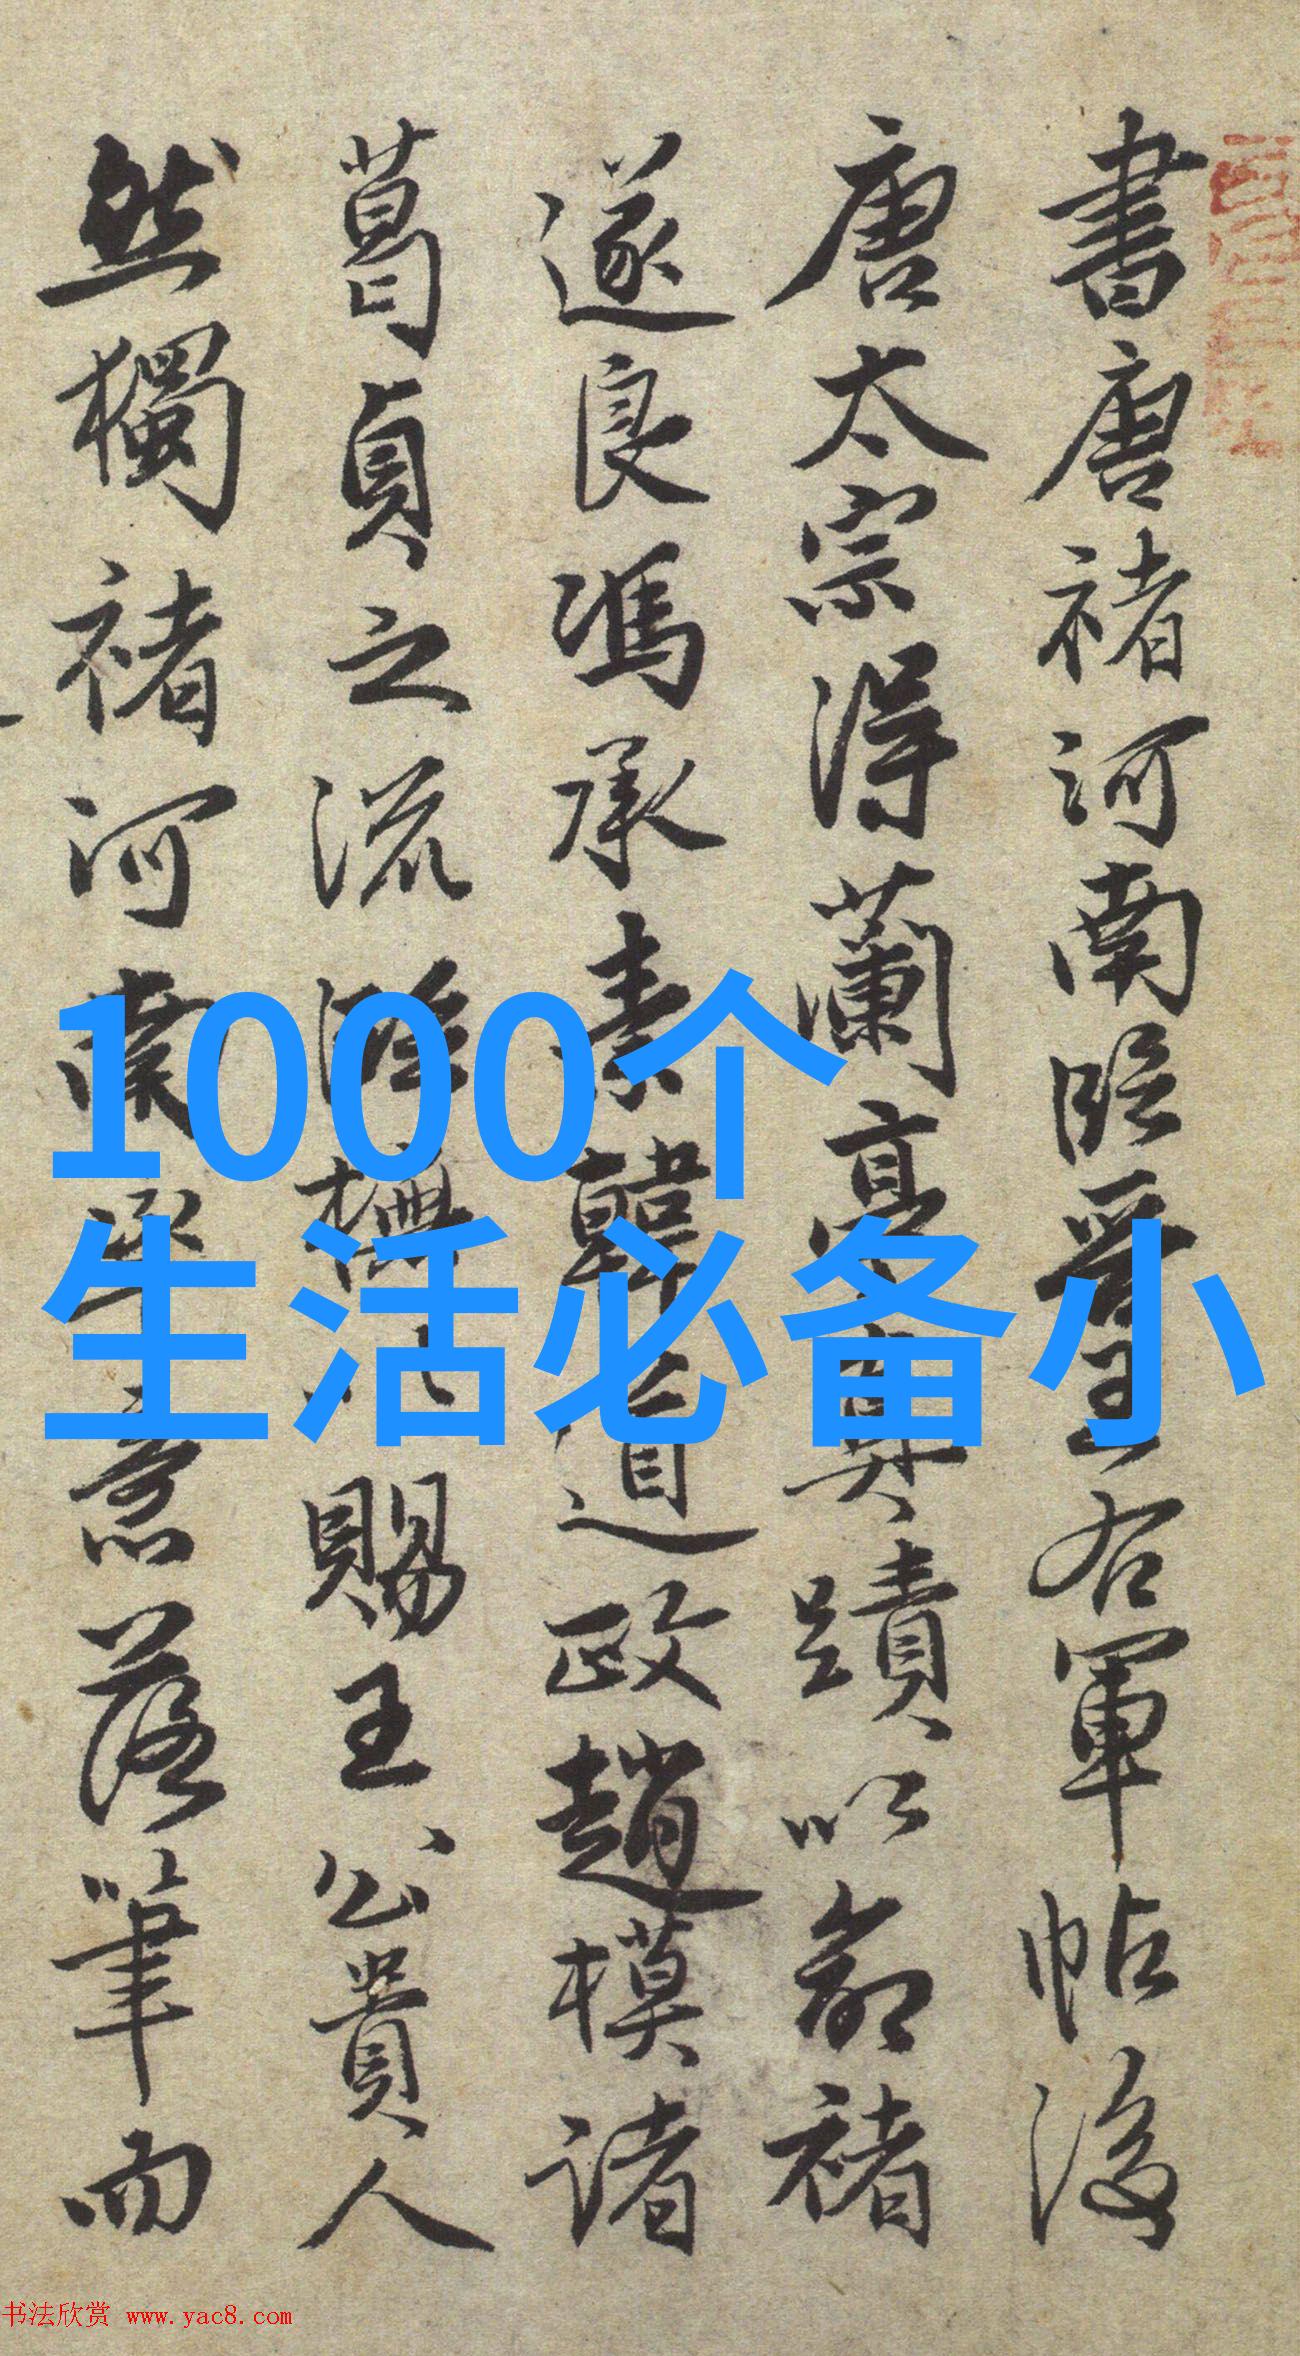 書唐褚河南臨晉王右軍帖後
唐太宗得蘭亭真蹟以命褚
遂良馮承素韓道政趙模諸
葛貞之流臨橅以賜王公貴人
然獨褚河南率意落筆而
1000个
生活必备小
书法欣赏 www.yac8.com